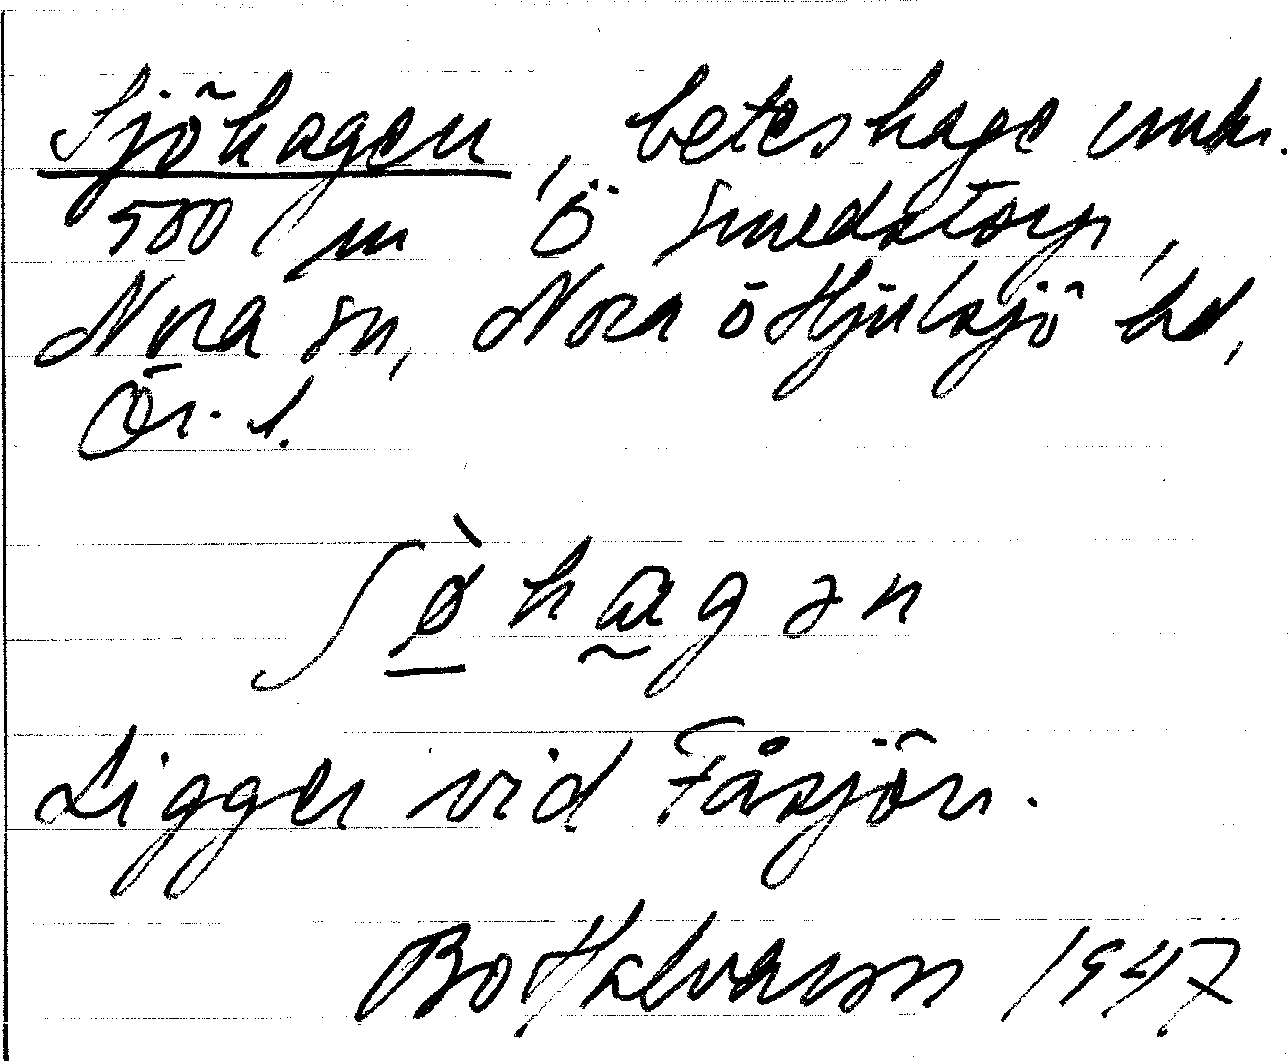 Sjöhagen, beteshage omkr.
500 m Ö Smedstorp,
Nora sn, Nora o Hjulsjö hd,
Ör. l.
ʃø̀hagən
Ligger vid Fåsjön.
Bo Halvarson 1947